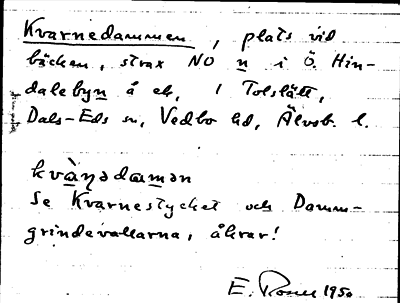 Kvarnedammen, plats vid
bäcken, strax NO n i Ö. Hin-
dalebyn å ek, 1 Tolslätt,
Dals-Eds sn, Vedbo hd, Älvsb. l.
kvàŋədamən
Se Kvarnestycket och Damm-
grindevallarna, åkrar!
E. 1950